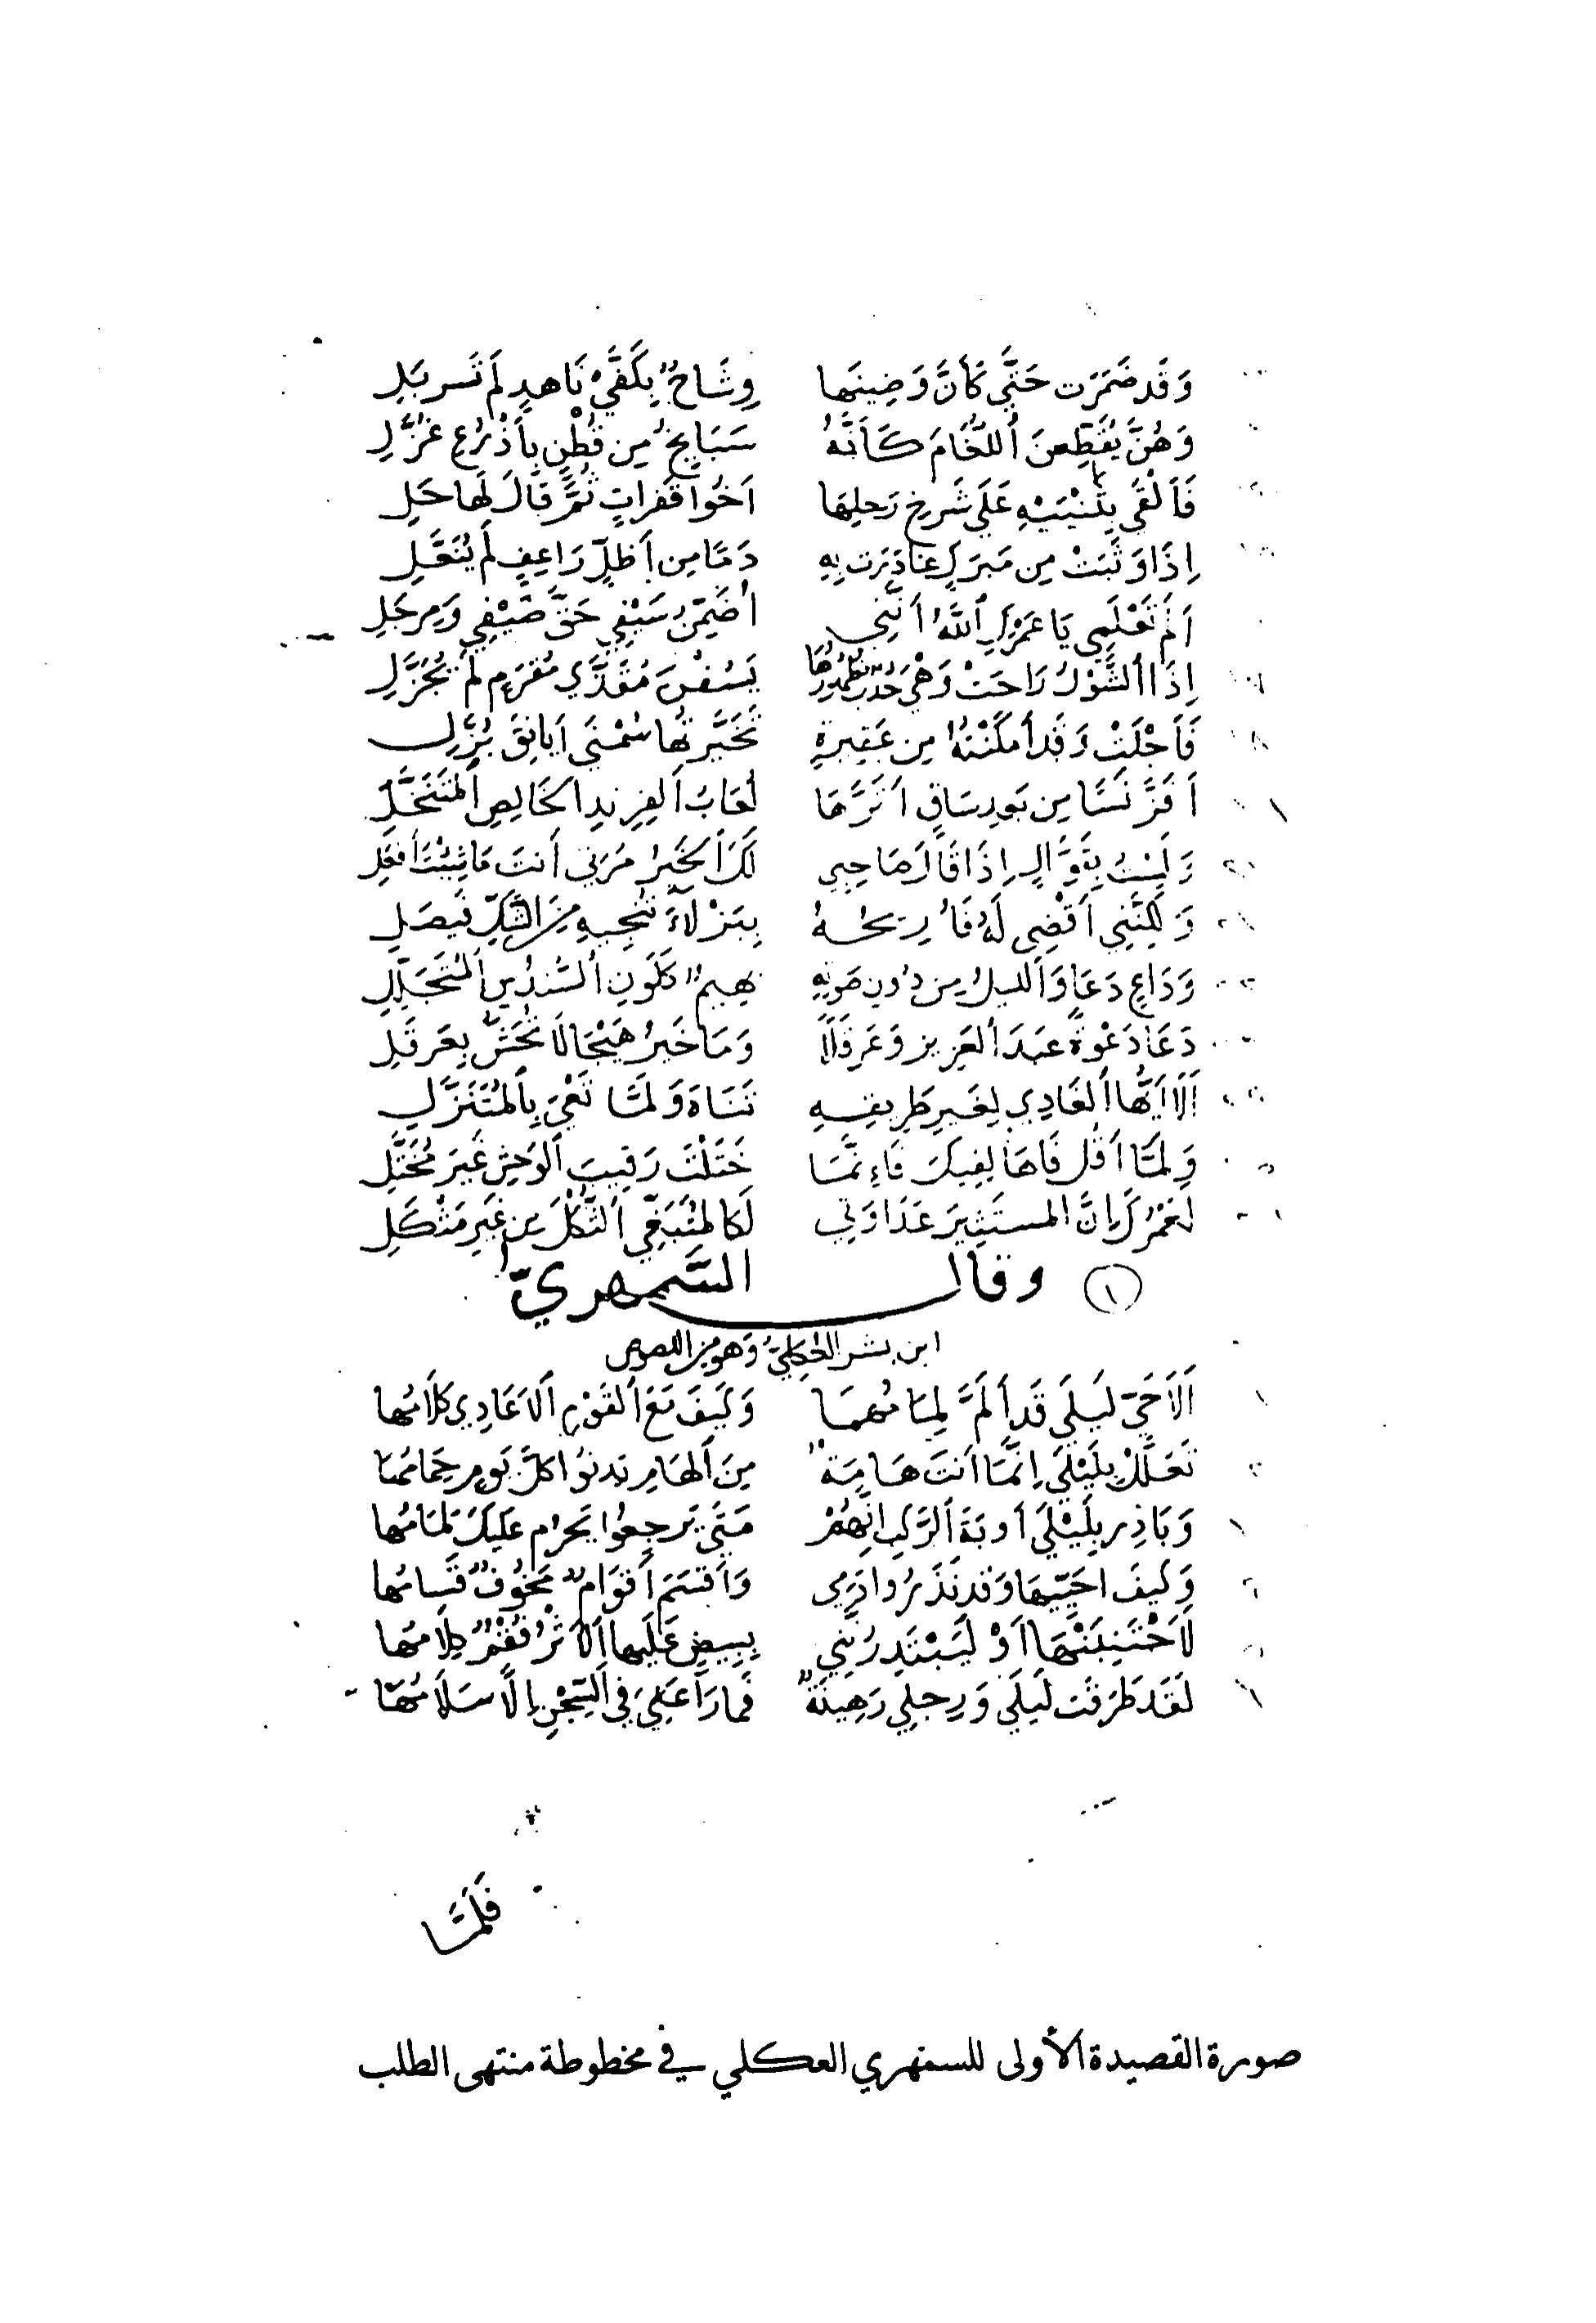 وَقَد ضَمَرَت حَتَّى كَأَنَّ وَضِينَهَا وِشَاحٌ بِكَفَّيْ نَاهِدٍ لَم تَسربَلِ
وَهُنَّ يُقَطِّعنَ اُللُّغَامَ كَأَنَّهُ سَبَايِخُ مِن قُطْنٍ بِأَذْرُعِ غُزَّلِ
فَأَلْقَى بِثَنْيَيْهِ عَلَى شَرخِ رَحلِهَا اَخُوا قَفَراتٍ ثُمَّ قَالَ لَهَا حَلِ
اِذَا وَثَبَتْ مِن مَبرَكٍ غَادَرَت بِهِ دَمًا مِن أَظلٍّ رَاعِفٍ لَم يُنَعَّلِ
اَلَم تَعْلَمِي يَا عَمرَكِ اَللهَ اَنَّنِي اُضَمِّنُ سَيْفِي حَقَّ ضَيْفِي وَمِرجَلِ
اِذَا اَلشَّوْلُ رَاحَتْ وَهْيَ حُدْبٌ ظُهُورُهَا يَسُفْنَ مُقَدَّي مُقرَمٍ لَم يُجَزَّلِ
فَأَجْلَتْ وَقَد أَمكَنْتُهُ مِن عَقِيرَةٍ تَخَيَّرتُهَا سُمْنَى اَيَانِقَ بُزَّلِ
اَفَزَّ نَسًا مِن بَعدِ سَاقٍ اَتَرَّهَا لُعَابُ اَلفِرِندِ اَلخَالِصِ اَلمُتَنَخَّلِ
وَلَستُ بِقَوَّالٍ اِذَا قَالَ صَاحِبِي لَكَ اَلخَيرُ مُرنِي أَنتَ مَا شِئْتَ أَفعَلِ
وَلكِنَّنِي اَقْضِى لَهُ فَأُرِيحُهُ بِبَزْلَاءَ تُنْجِيهِ مِنَ الشَّكِّ فَيصَلِ
وَدَاعٍ دَعَا وَاَلليلُ مِن دُونِ صَوتِهِ بَهِيمٌ كَلَونِ اَلسُّندُسِ اَلمُتَجَلِّلِ
دَعَا دَعْوَةً عَبدَ اَلعَزِيزِ وَعَرقَلًا وَمَا خَيرُ هَيْجَا لَا تُحَشُّ بِعَرقَلِ
اَلَا اَيُّهَا اَلغَادِي لِغَيرِ طَرِيقِهِ تَنَاهَ وَلَمَّا تَعْيَ بِاَلمُتَنَزَّلِ
وَلَمَّا اَقُل فَاهَا لِفِيكَ فَاِنَّمَا خَتَلْتَ رَقِيبَ اَلوَحشِ غَيرَ مُخَتَّلِ
لَعَمرُكَ اِنَّ المستَثِيرَ عَدَاوَتِي لَكَالمُبتَغِي اَلثُّكْلَ مِن غَيرِ مَثْكَلِ
١ وقال السَّمهريّ
ابن بشر العُكلِيّ وَهو من اللصوص
اَلَا حَيِّ لَيلَى قَد أَلَمَّ لِمَامُهَا وَكَيفَ مَعَ اَلقَوْمِ اَلاَعَادِي كَلَامُهَا
تَعَلَّلْ بِلَيْلَى اِنَّمَا اَنتَ هَامَةٌ مِنَ اَلهَامِ يَدنُوا كلَّ يَومٍ حِمَامُهَا
وَبَادِر بِلَيْلَى أَوبَةَ اَلرَّكبِ اِنَّهُمْ مَتَى يَرجِعُوا يَحرُم عَلَيكَ لِمَامُهَا
وَكَيفَ اُحَيِّيهَا وَقد نَذَرُوا دَمِى وَاَقسَمَ اَقوَامٌ مَخُوفٌ قَسَامُهَا
لَأَجْتَنِبَنْهَا اَوْ لَيَبْتَدِرُنَّنِي بِبِيضٍ عَلَيها اَلأَثْرُ فُقْمٌ كِلَامُهَا
لَقَد طَرَقَت لَيلَى وَرِجلِي رَهِينَةٌ فَمَا رَاعَنِي فِى اَلسِّجْنِ اِلَّا سَلَامُهَا
فَلَمَّا
صورة القصيدة الأولى للسمهري العكلي في مخطوطة منتهى الطلب